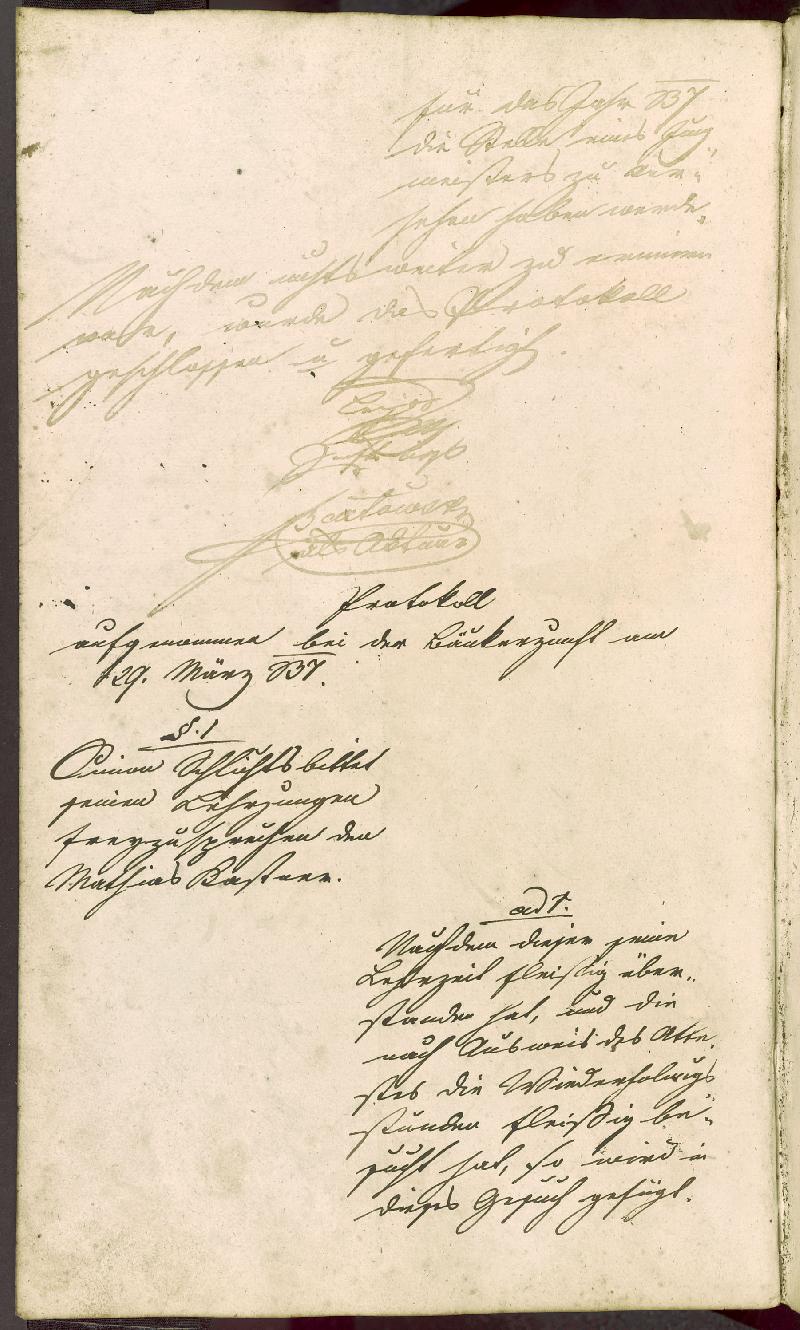 für das Jahr 837
die Stelle eines Zunft
meisters zu ver-
sehen haben werde.
Nachdem nichts weiter zu erinnern
war, wurde das Protokoll
geschlossen u gefertigt.
als Aktuar
Protokoll
aufgenommen bei der Bäckerzunft am
29. März 837.
§. 1
Simon Schlichts bittet
seinen Lehrjungen
freyzusprechen den
Mathias Kastner.
ad 1.
Nachdem dieser seine
Lehrzeit fleißig über-
standen hat, und die
nach Ausweis des Atte-
stes die Wiederholungs
stunden fleißig be-
sucht hat, so wird in
dieses Gesuch gefügt.